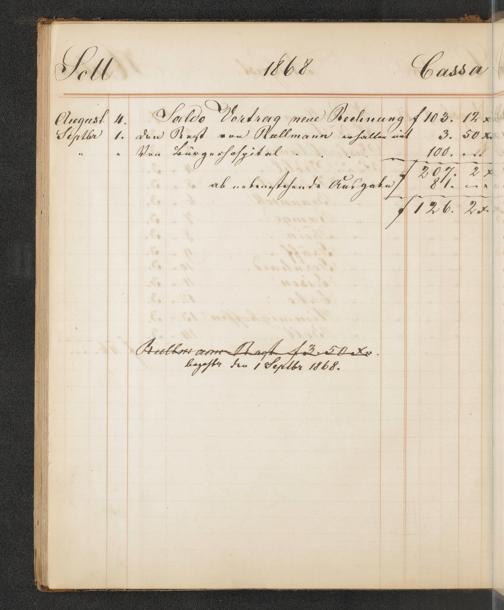 Soll 1868 Cassa
August 4. Saldo Vortrag neue Rechnung f 103. 12 x
Septbr 1. den Rest von Rallmann erhalten mit 3. 50 x
" " Von Bürgerhospital . . . 100. – –
f 207. 2 x
ab nebenstehende Ausgabe 81. – –
f 126. 2 x
Rallmann Rest f 3. 50 xr.
bezahlt den 1 Septbr 1868.